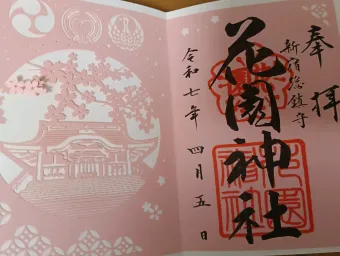 奉拝
新宿総鎮守
花園神社
令和七年 四月五日